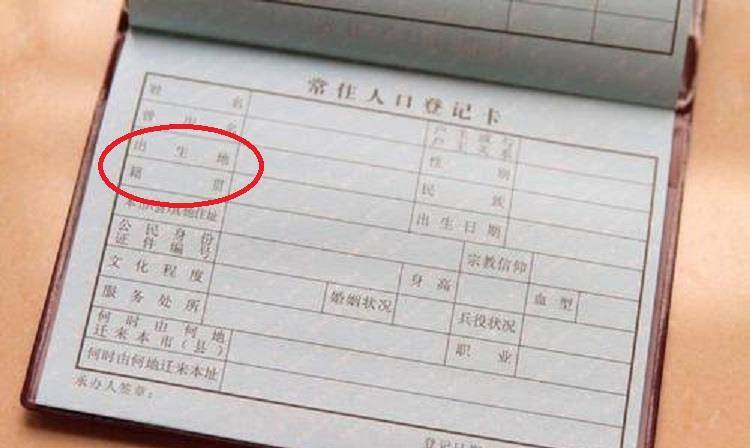 常住人口登记卡
姓名
曾用名 户主或与户主关系
出生地 性别
籍贯 民族
本市(县)其他住址 出生日期
公民身份证件编号 宗教信仰
文化程度 身高 血型
服务处所 婚姻状况 兵役状况
何时由何地迁来本市(县) 职业
何时由何地迁来本址
承办人签章： 登记日期